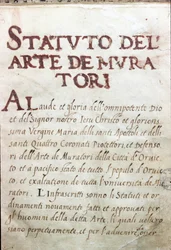 STATUTO DEL'
ARTE DE MURA
TORI
A Laude et gloria dell'omnipotente Dio
et del Signor nostro Iesu Christo et glorio
sima Vergine Maria delli santi Apostoli et delli
santi Quattro Coronati Protettori et Defenso
ri dell'Arte de Muratori della Città d'Orvie
to et a pacifico stato de tutto 'l popolo d'Orvieto
et exaltatione de tutta l'università de Mu
ratori. L'infrascritti sonno li Statuti et or
dinamenti novamente fatti et approvati per
gl'huomini della detta Arte li quali
siano perpetuamente, et per l'advenire